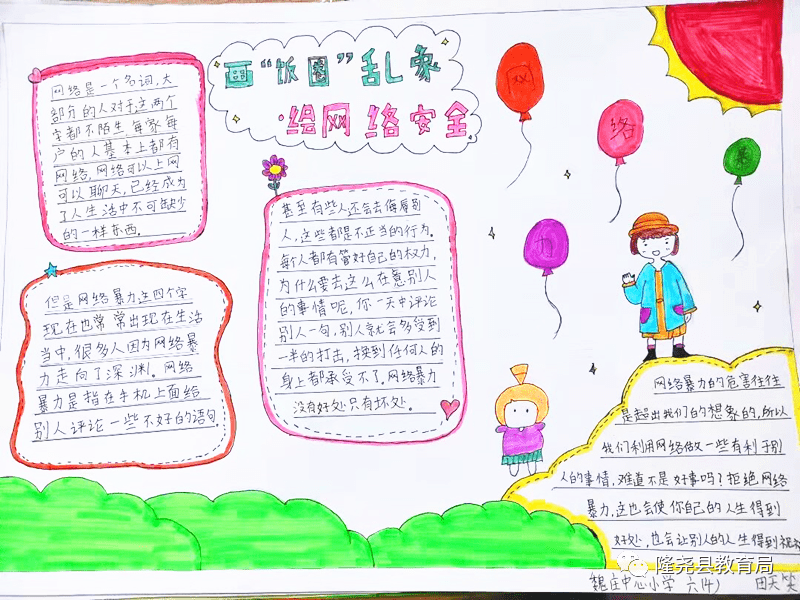 画“饭圈”乱象
绘网络安全
网络是一个名词,大
部分的人对于这两个
字都不陌生每家每
户的人基本上都有
网络,网络可以上网
可以聊天,已经成为
了人生活中不可缺少
的一样东西。
但是网络暴力这四个字
现在也常常出现在生活
当中,很多人因为网络暴
力走向了深渊。网络
暴力是指在手机上面给
别人评论一些不好的语句
甚至有些人还会去侮辱别
人,这些都是不正当的行为。
每个人都有管好自己的权力,
为什么要去这么在意别人
的事情呢,你一天中评论
别人一句,别人就会多受到
一半的打击,换到任何人的
身上都承受不了。网络暴力
没有好处只有坏处。
网
络
暴
力
网络暴力的危害往往
是超出我们的想象的,所以
我们利用网络做一些有利于别
人的事情,难道不是好事吗?拒绝网络
暴力,这也会使你自己的人生得到
好处,也会让别人的人生得到祝
隆尧县教育局
魏庄中心小学 六(4) 田天笑